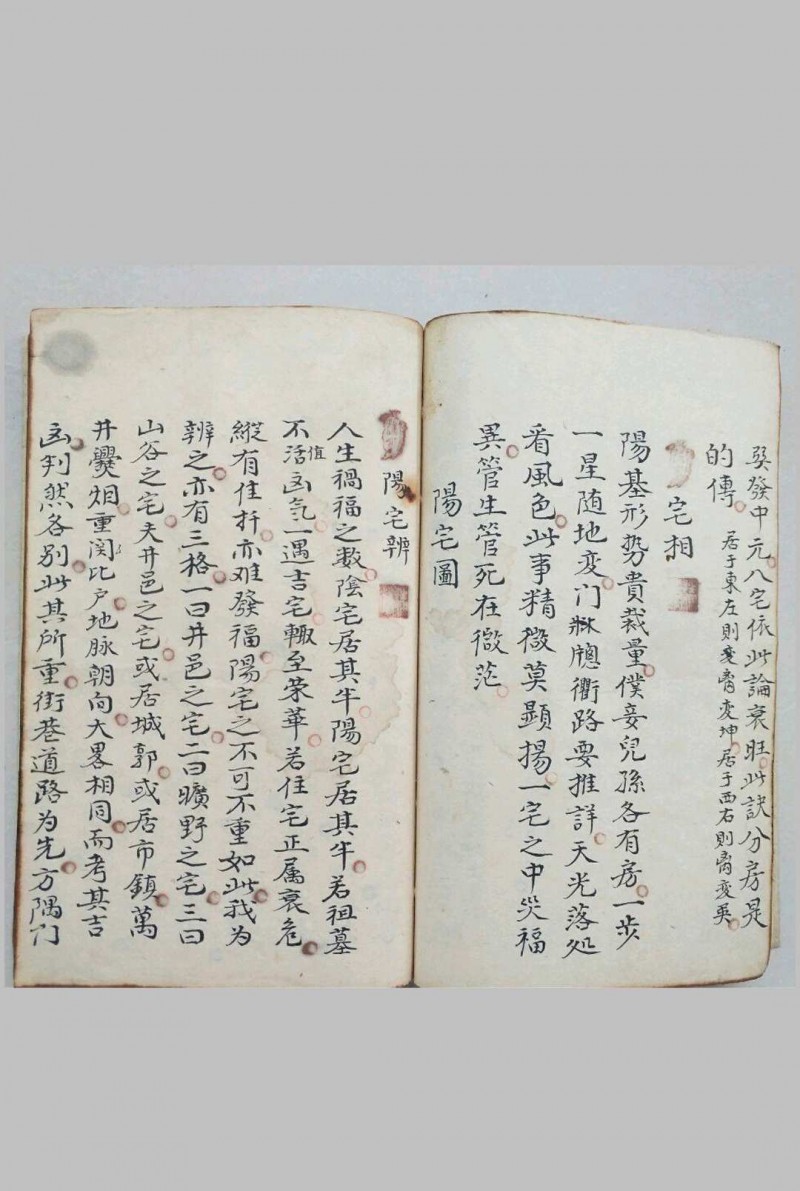 巽發中元八宅依此論衰旺此訣分房是
的傳 居于東左則変离変坤居于西右則离変巽
宅相
陽基形势貴裁量僕妾兒孫各有房一步
一星随地変门牀牕衢路要推詳天光落処
看風色此事精微莫顯揚一宅之中災福
異管生管死在微茫
陽宅圖
陽宅辨
人生禍福之数陰宅居其半陽宅居其半若祖墓
不活值凶气一遇吉宅輙至荣華若住宅正属衰危
縱有佳扦亦难發福陽宅之不可不重如此我为
辨之亦有三格一曰井邑之宅二曰曠野之宅三曰
山谷之宅夫井邑之宅或居城郭或居市鎮萬
井爨烟重関比户地脉朝向大畧相同而考其吉
凶判然各别此其所重街巷道路为先方隅门